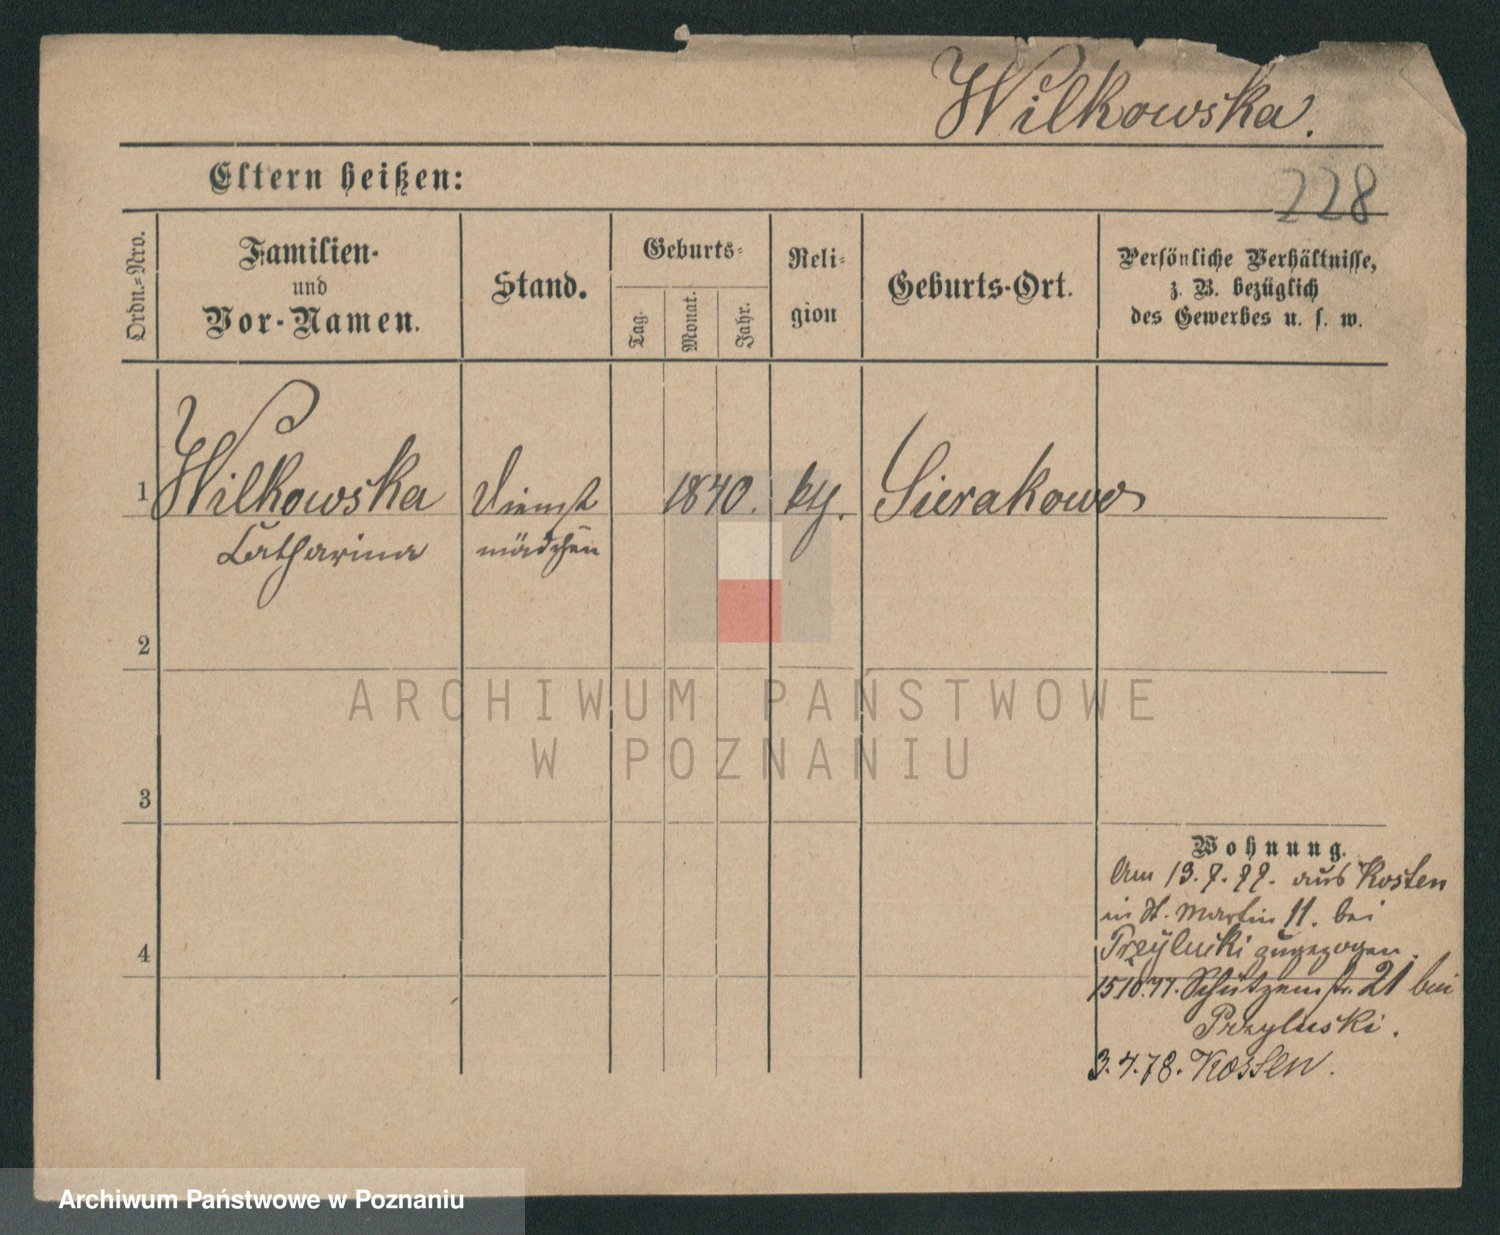 Wilkowska.
Eltern heißen:
228
Ordn.-Nro.
Familien-
und
Vor-Namen.
Stand.
Geburts-
Tag.
Monat.
Jahr.
Reli-
gion
Geburts-Ort.
Persönliche Verhältnisse,
z. B. bezüglich
des Gewerbes u. s. w.
1
Wilkowska
Catharina
Dienst
mädchen
1840.
Sierakowo
2
3
4
Wohnung.
Am 13.7.77. aus Kosten
in St. Martin 11. bei
Przyluski zugezogen.
15.10.77. Schützenstr. 21 bei
Przyluski.
3.4.78. Kosten.
ARCHIWUM PAŃSTWOWE
W POZNANIU
Archiwum Państwowe w Poznaniu